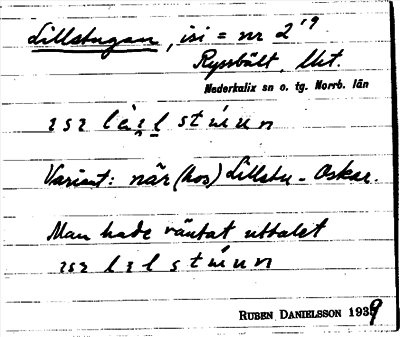 Lillstugan, isi = nr 2¹⁹
Ryssbält, Ut.
Nederkalix sn o. tg. Norrb. län
Variant: när (hos) Lillstu-Oskar.
Man hade väntat uttalet
RUBEN DANIELSSON 1939